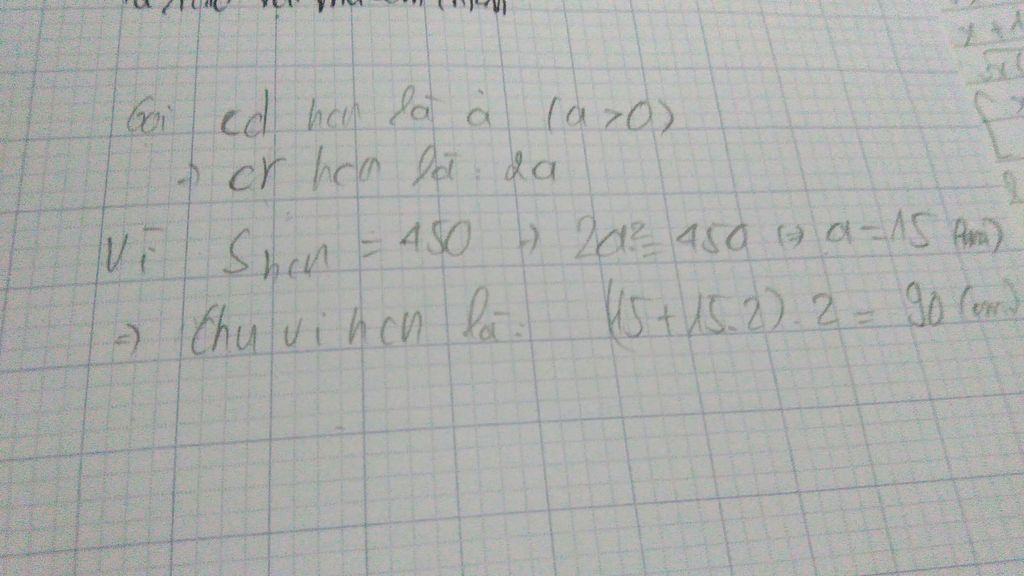 Gọi cd hcn là a (a>0)
→ cr hcn là: 2a
Vì Shcn = 450 → 2a² = 450 ⇔ a = 15 (cm)
⇒ Chu vi hcn là: (15+15.2).2 = 90 (cm)